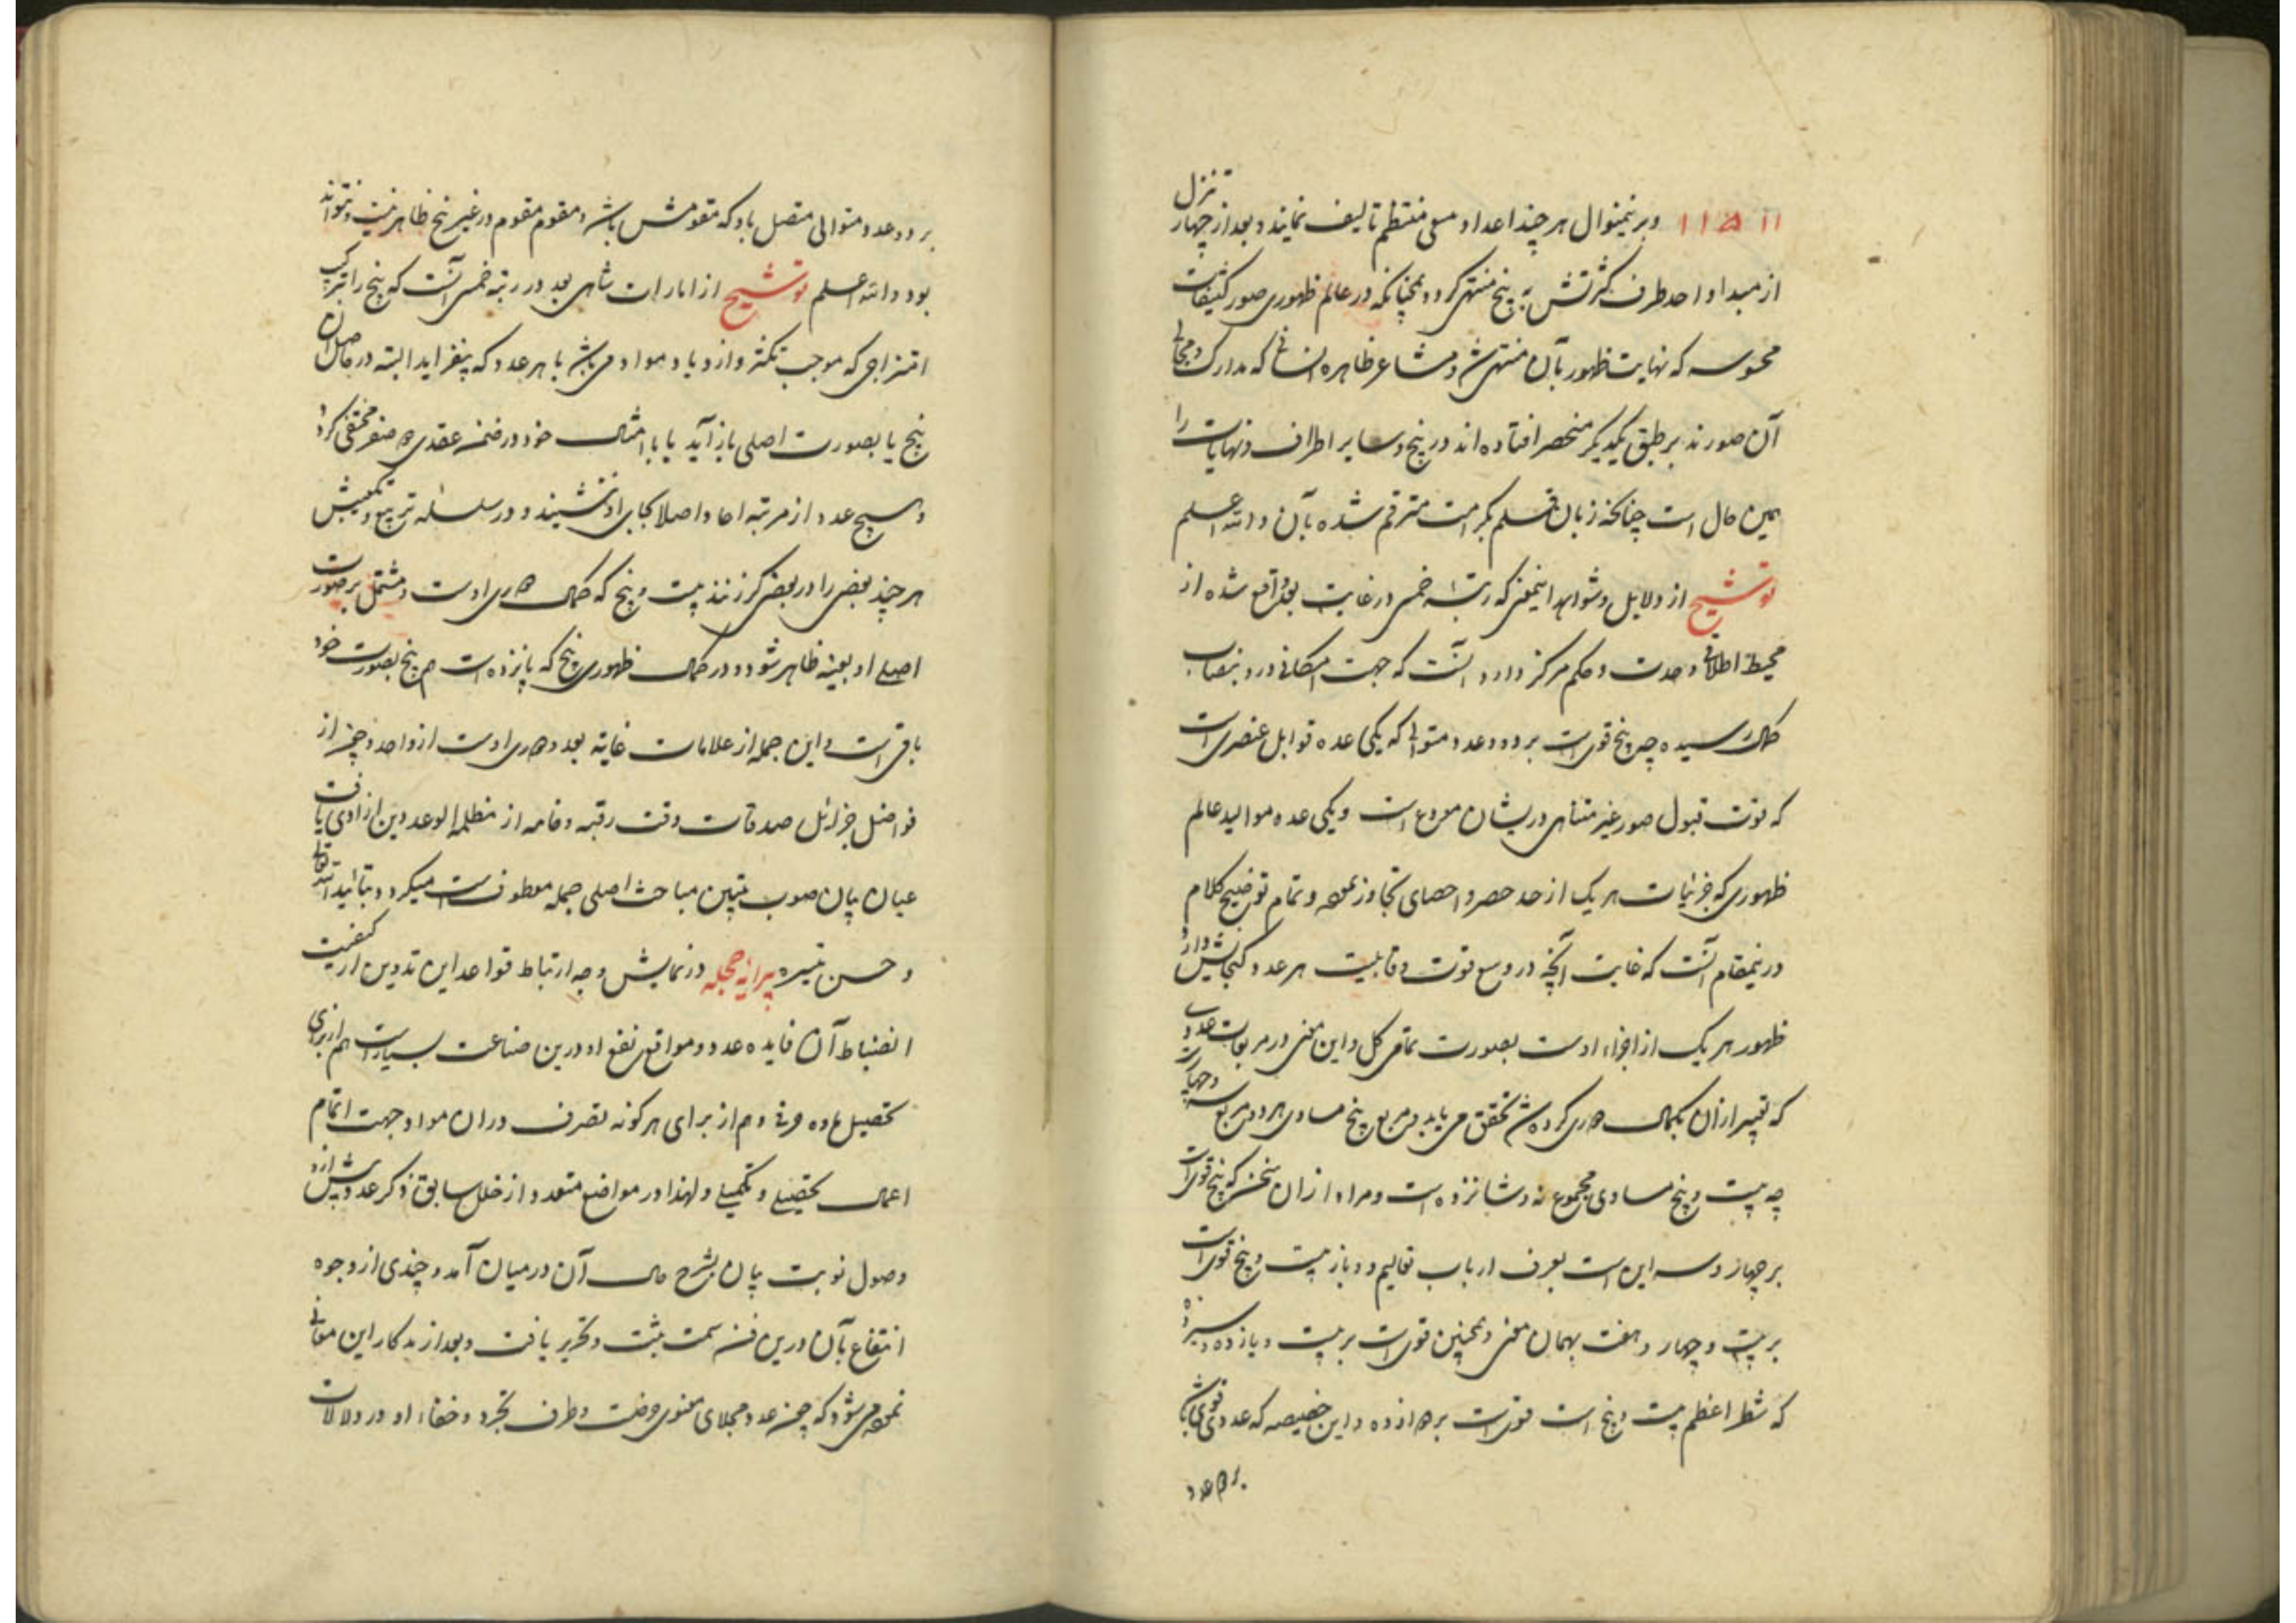 ۱۱ ۵ ۱۱ و برینمنوال هر چند اعداد مسمی منتظم تالیف نمایند و بعد از چهار تنزل
از مبداء واحد طرف کثرتش به پنج منتهی کردد همچنانکه در عالم ظهوری صور کثیفات
محسوسه که نهایت ظهور بآن منتهی شد و مشاعر ظاهره انسانی که مدارک و مجالی
آن صورند بر طبق یکدیگر منحصر افتاده اند در پنج و سایر اطراف و نهایات را
همین حال است چنانکه زبان قلم بکرامت مترقم شده بآن والله اعلم
توشیح از دلایل و شواهد اینمعنی که رتبه خمس در غایت بعد واقع شده از
محیط اطلاقی وحدت و حکم مرکز دارد آنست که جهت امکانی درو بنصاب
کمال رسیده چه پنج قویست بر دو عدد متوالی که یکی عده قوابل عنصریست
که قوت قبول صور غیر متناهی در یشان مودع است و یکی عده موالید عالم
ظهوری که جزئیات هر یک از حد حصر و احصای تجاوز نموده و تمام توضیح کلام
درینمقام آنست که غایت آنچه در وسع قوت و قابلیت هر عدد کنجایش دارد
ظهور هر یک از اجزاء اوست بصورت تمامی کل و این معنی در مربعات عددی
که تعبیر ازان بکمال کرده شد تحقق می یابد و مربع پنج مساوی هر دو مربع سه و چهارست
چه بیست و پنج مساوی مجموع نه و شانزده است و مراد ازان سخن که پنج قویست
بر چهار و سه این است بعرف ارباب تعالیم و باز بیست و پنج قویست
بر بیست و چهار و هفت بهمان معنی و همچنین قویست بر بیست و پانزده و سیزده
که شطر اعظم بیست و پنج است قویست بر دوازده و این خصیصه که عددی قوی باشد
بر دو عدد
بر دو عدد متوالی متصل باو که مقومش باشد و مقوم مقوم در غیر پنج ظاهر نیست و نتواند
بود والله اعلم توشیح از امارات تناهی بعد در رتبه خمس آنست که پنج را ترکیب
امتزاجی که موجب تکثر و ازدیاد مواد می باشد با هر عدد که بیفزاید البته در حاصل آن
پنج یا بصورت اصلی باز آید یا با امثال خود در ضمن عقدی و صفر مختفی کردد
و هیچ عدد از مرتبه احاد اصلا بجای او ننشیند و در سلسله تربیع و تکعیبش
هر چند بعضی را در بعضی کرز نند بیست و پنج که کمال اوست و مشتمل بر صورت
اصلی او بعینه ظاهر شود و در کمال ظهوری پنج که پانزده است هم پنج بصورت خود
باقیست و این جمله از علامات غایة بعد اوست از واحد و چون از
فواضل جزائل صدقات وقت رقبه و خامه از مظلمة الوعد دین آزادی یافت
عنان بیان صوب تبیین مباحث اصلی جمله معطوف میکردد بتائید الله تعالی
و حسن تیسیره پیرایه حجله در نمایش وجه ارتباط قواعد این تدوین از کیفیت
انضباط آن فایده عدد و مواقع نفع او درین صناعت بسیارست هم از برای
تحصیل ماده حرفی و هم از برای هر کونه تصرف دران مواد جهت اتمام
اعمال تحصیلی و تکمیلی و لهذا در مواضع متعدد از خلال سابق ذکر عدد پیش از
وصول نوبت بیان بشرح حال آن در میان آمد و چندی از وجوه
انتفاع بآن درین فن سمت ثبت و تحریر یافت و بعد از تذکار این معانی
نموده می شود که چون عدد مجلای معنوی حرفست و طرف تجرد و خفاء او در دلالات